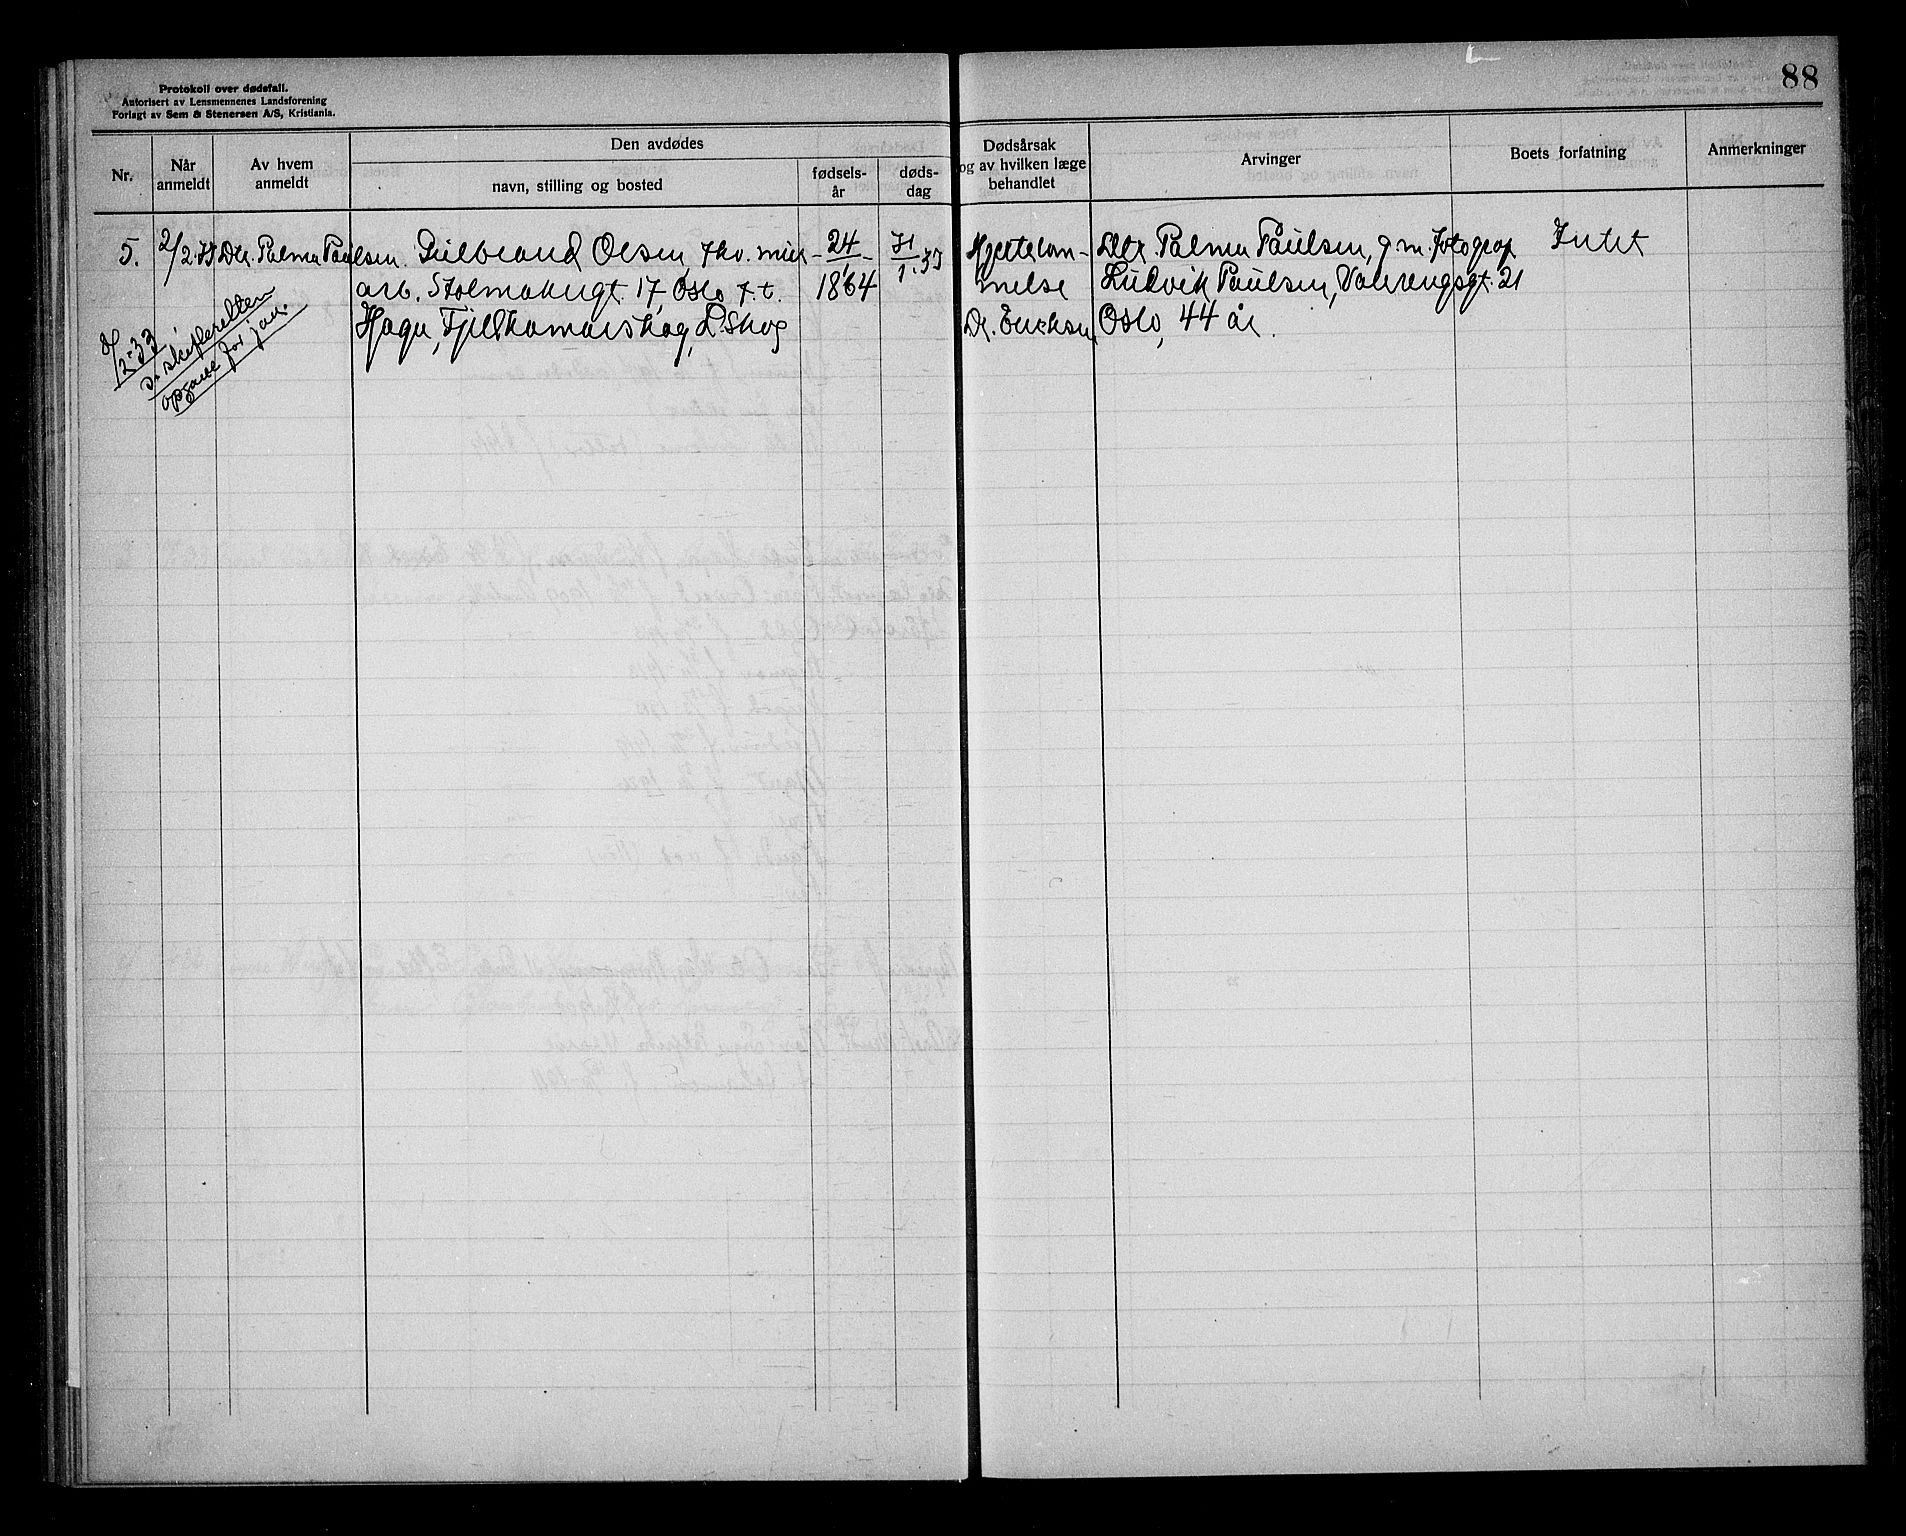 88
Protokoll over dødsfall.
Autorisert av Lensmennenes Landsforening
Forlagt av Sem & Stenersen A/S, Kristiania.
Nr.
Når anmeldt
Av hvem anmeldt
Den avdødes
navn, stilling og bosted
fødsels-år
døds-dag
Dødsårsak og av hvilken læge behandlet
Arvinger
Boets forfatning
Anmerkninger
5. 2/2.33 Dtr. Palma Paulsen. Gulbrand Olsen, fhv. mur- 24/1 31/1.33 Hjertelam- Dtr. Palma Paulsen, g.m. fotograf Intet
arb. Stolmakergt. 17, Oslo f.t. 1864 melse Ludvik Paulsen, Vålerengsgt. 21
Haga, Fjellhamarskog, L.skog Dr. Erichsen Oslo, 44 år.
2-33
skifteretten
opgave for jan.